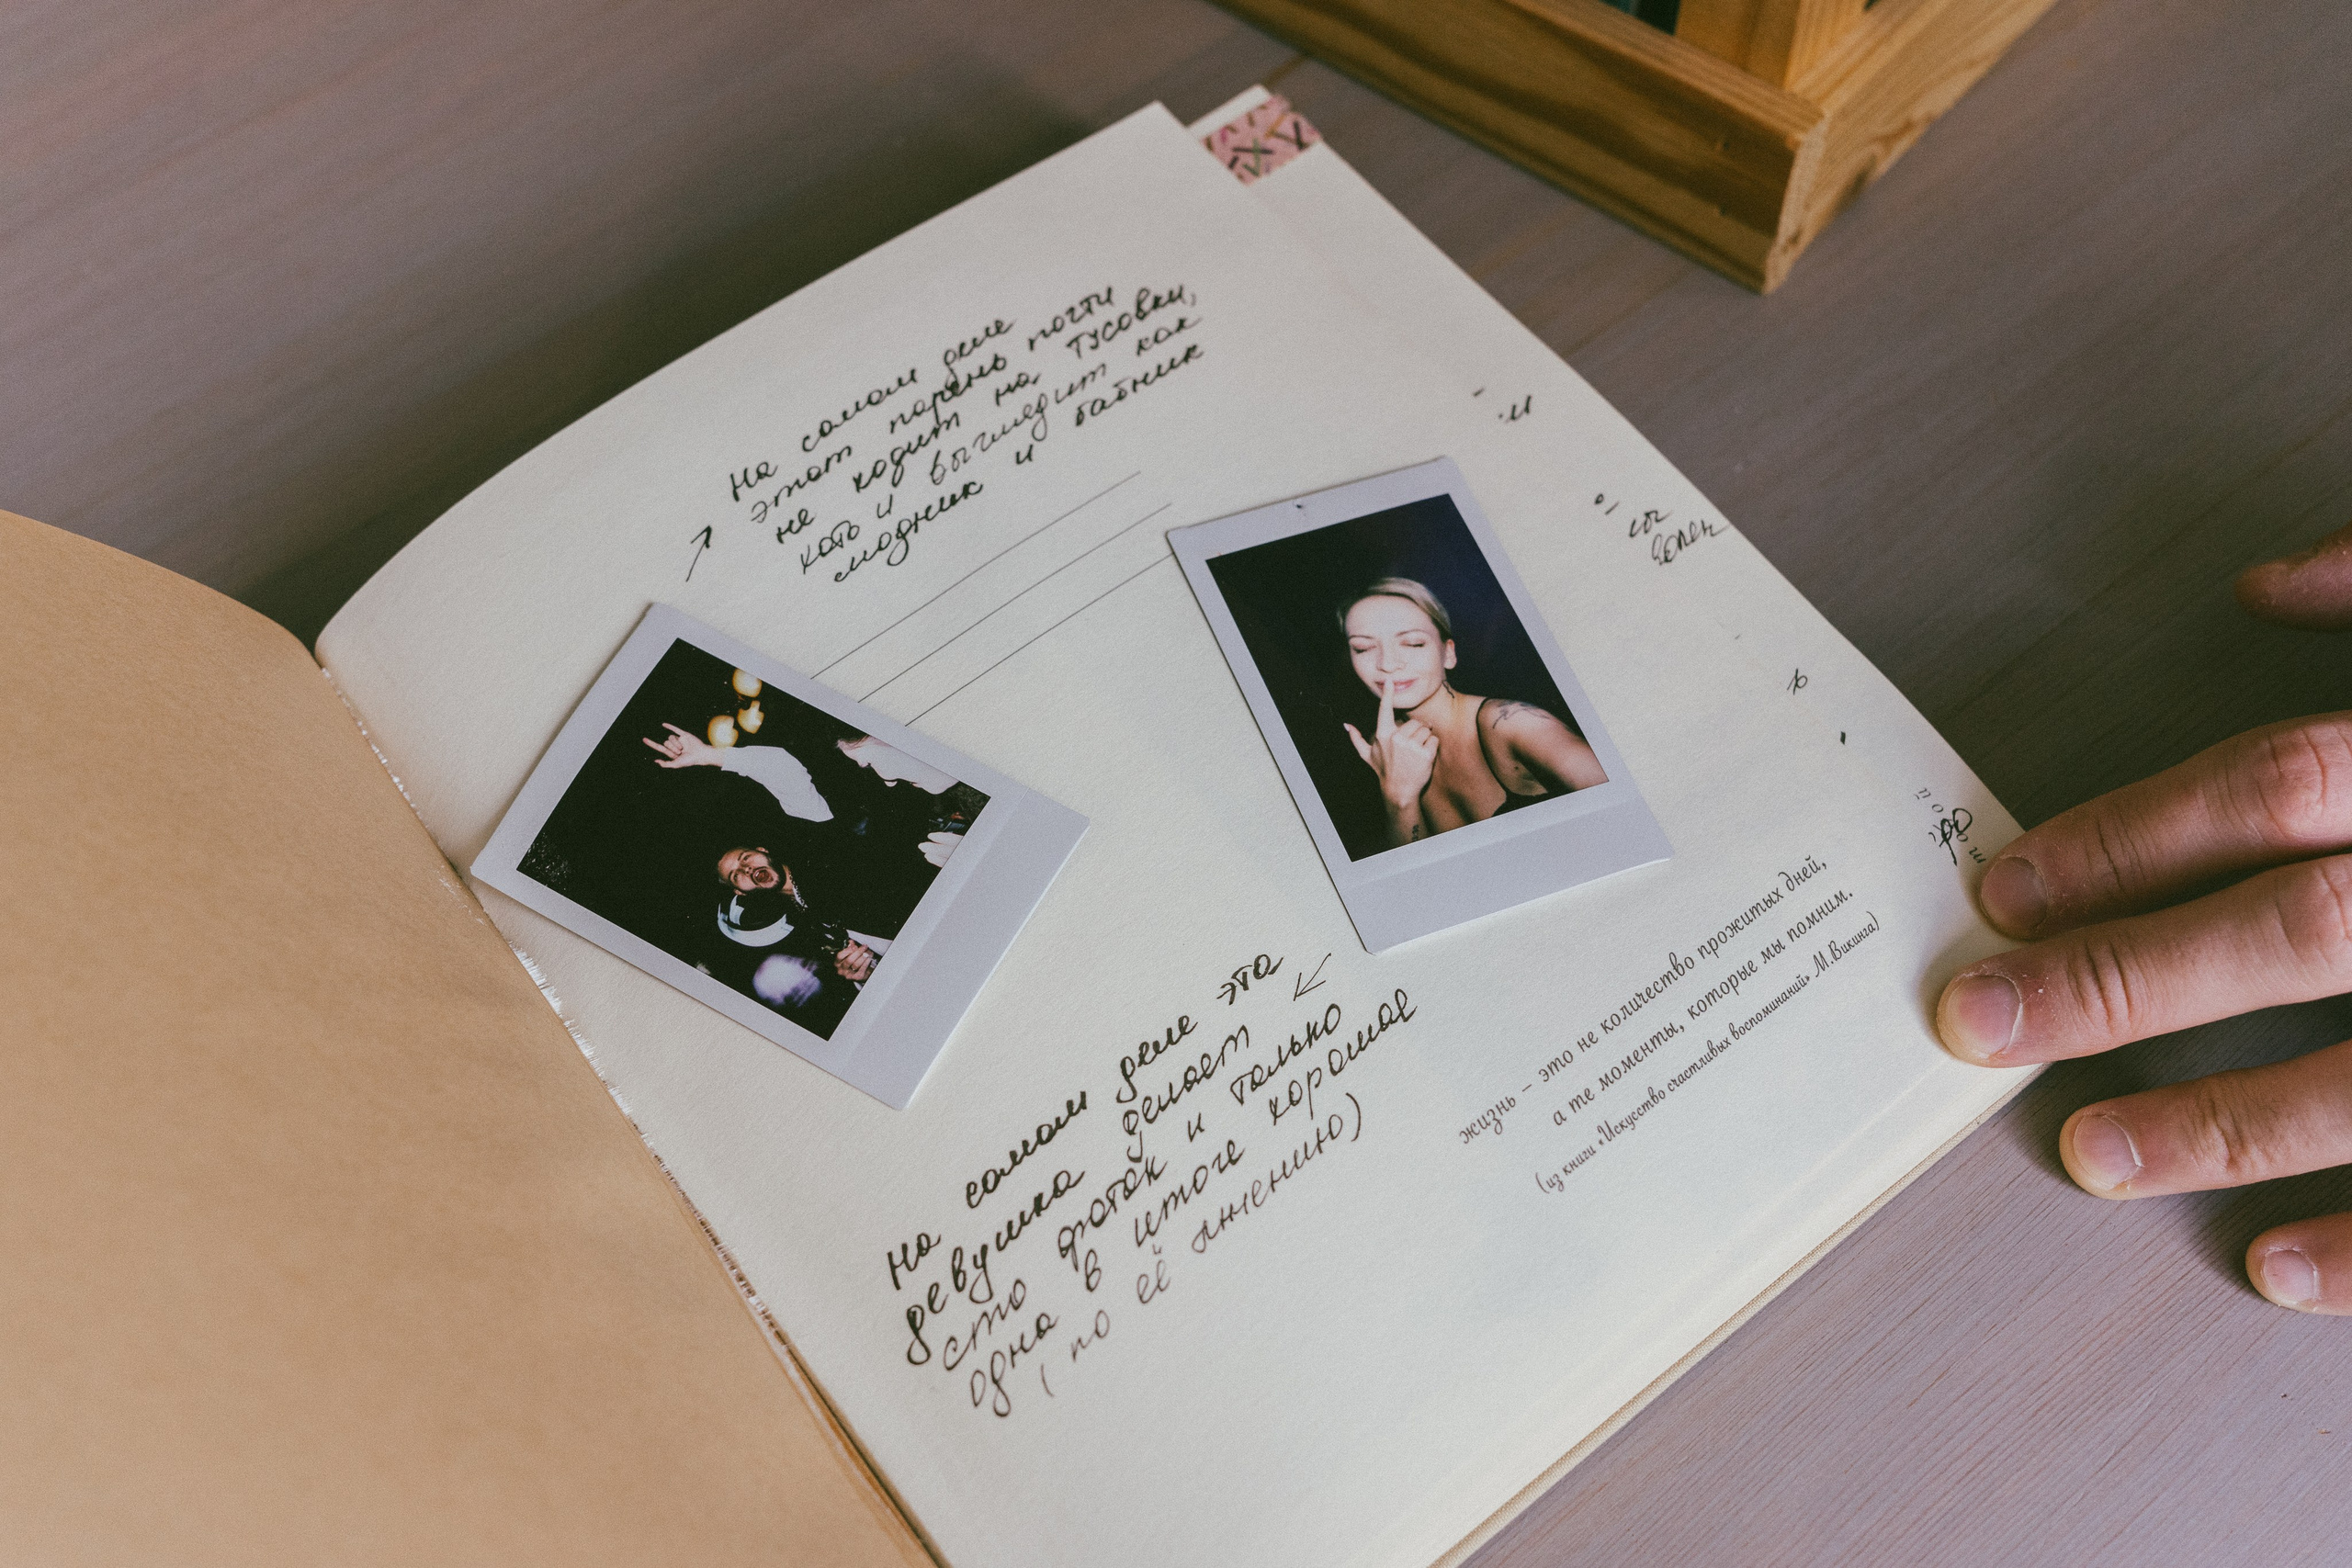 На самом деле
этот парень почти
не ходит на тусовки,
хотя и выглядит как
модник и бабник
На самом деле эта
девушка делает
сто фоток и только
одна в итоге хорошая
(по её мнению)
жизнь – это не количество прожитых дней,
а те моменты, которые мы помним.
(из книги «Искусство счастливых воспоминаний» М.Викинга)